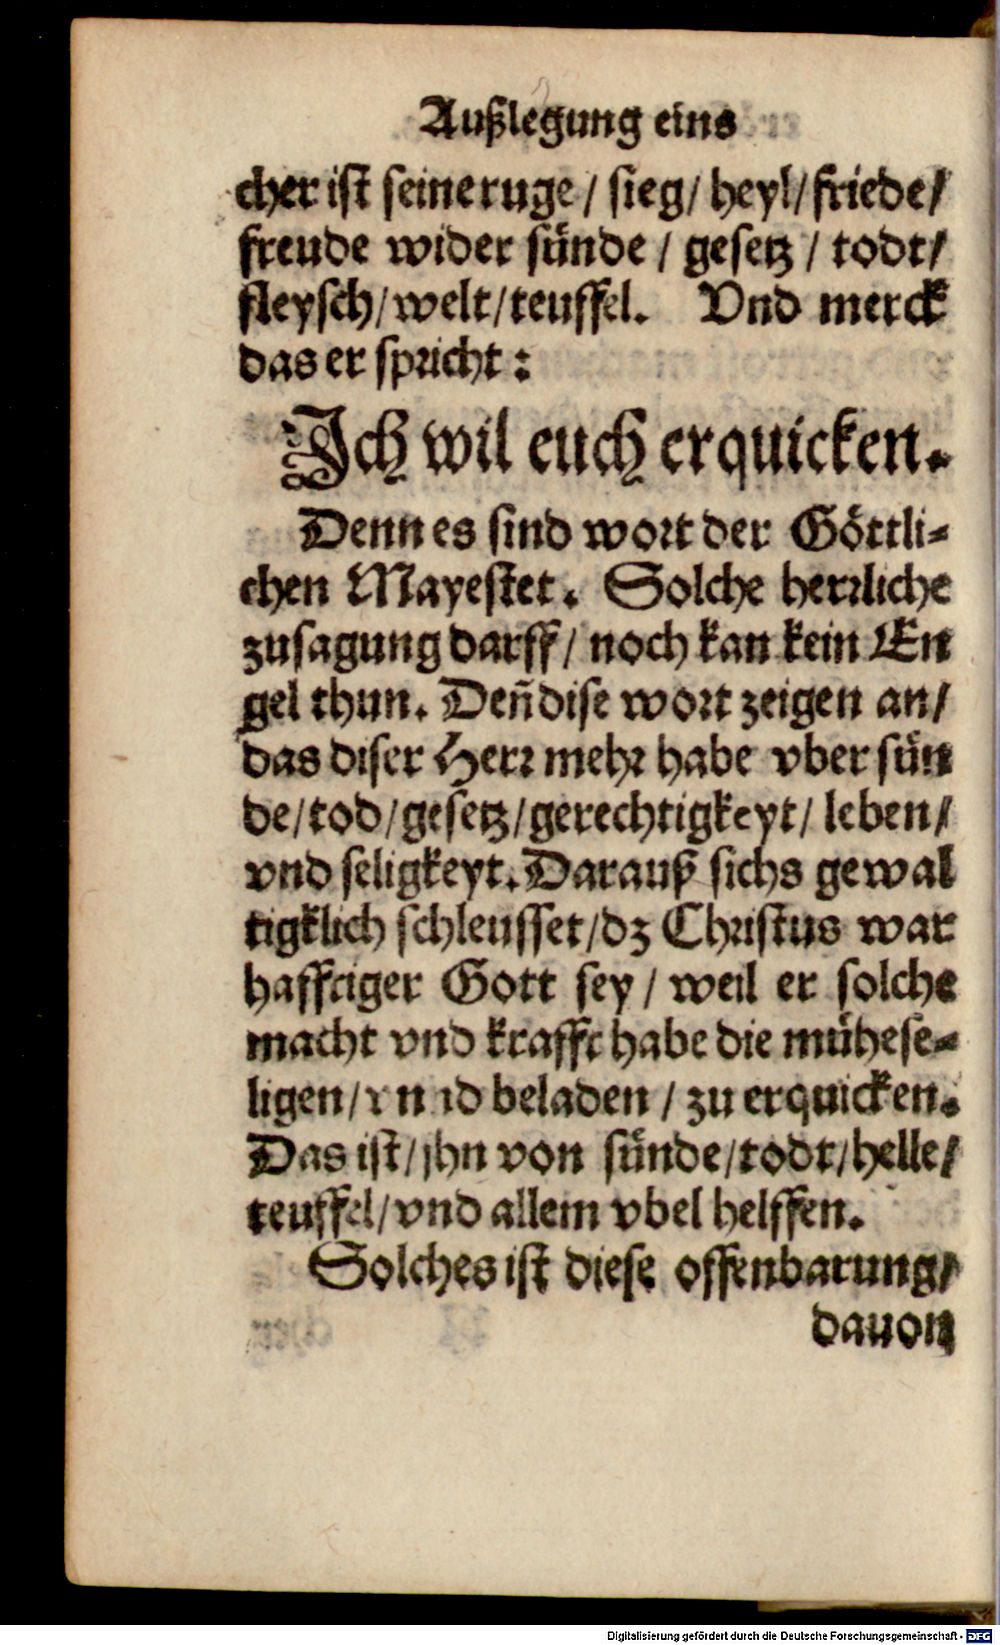 Außlegung eins
cher ist seine ruge / sieg / heyl / friede /
freude wider sünde / gesetz / todt /
fleysch / welt / teuffel. Vnd merck
das er spricht :
Ich wil euch erquicken.
Denn es sind wort der Göttli-
chen Mayestet. Solche herrliche
zusagung darff / noch kan kein En
gel thun. Deñ dise wort zeigen an /
das diser Herr mehr habe vber sün
de / tod / gesetz / gerechtigkeyt / leben /
vnd seligkeyt. Darauß sichs gewal
tigklich schleusset / dz Christus war
hafftiger Gott sey / weil er solche
macht vnd krafft habe die mühese-
ligen / vnnd beladen / zu erquicken.
Das ist / jhn von sünde / todt / helle /
teuffel / vnd allem vbel helffen.
Solches ist diese offenbarung /
dauon
Digitalisierung gefördert durch die Deutsche Forschungsgemeinschaft - DFG